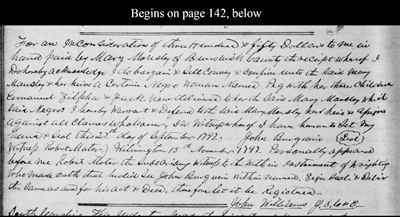 Begins on page 142, below
For an in Consideration of three Hundred & fifty Dollars to me in
hand paid by Mary Mousley of Brunswick County the receipt whereof I
Do hereby acknowledge I do bargain & Sell Convey & Confirm unto the Said Mary
Mousley & her heirs a Certain Negro Woman Named Peg with her three Children
Emmanuel Zilpha & Jack now delivered to her the Said Mary Mousley which
Said Negros I hereby Warrant & Defend unto Said Mary Mousley her heirs & assigns
Against all Claims whatsoever, In Witness whereof I have hereunto Set my
Hand & Seal this 27 day of September 1797. John Burguin (Seal)
Witness Robert Muter) Wilmington 15th November 1797 Personally appeared
before me Robert Muter the Subscribing Witness to the Within instrument of writing
Who made oath that he did See John Burguin within named Sign Seal & Deliver
the Same as and for his act & Deed, therefore let it be Registered
John Williams